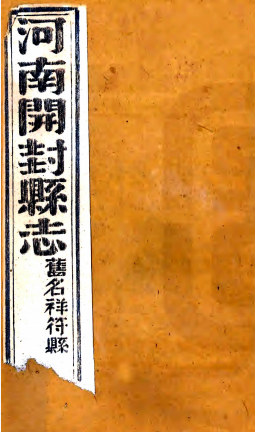 河南開封縣志
舊名祥符縣